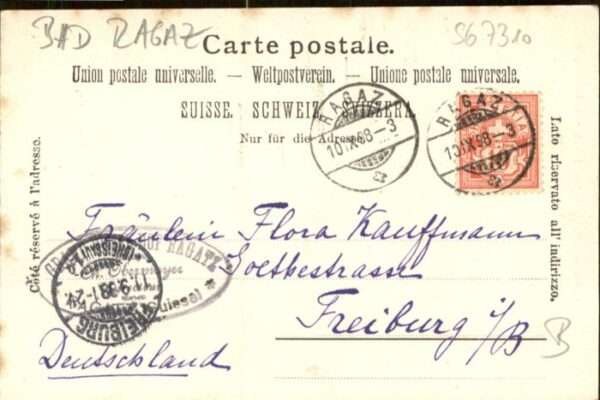 BAD RAGAZ
S67310
Carte postale.
Union postale universelle. — Weltpostverein. — Unione postale universale.
SUISSE. SCHWEIZ. SVIZZERA.
Nur für die Adresse.
Côté réservé à l'adresse.
Lato riservato all' indirizzo.
RAGAZ
10.IX.98-3
RAGAZ
10.IX.98-3
Fräulein Flora Kauffmann
Goethestrasse
Freiburg i/B
Deutschland
RAGATZ
(Suisse)
FREIBURG
B